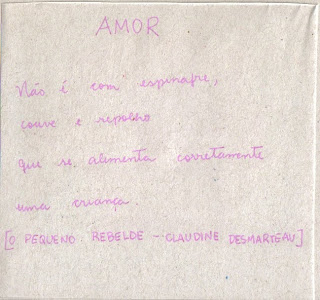 AMOR
Não é com espinafre,
couve e repolho
que se alimenta corretamente
uma criança.
[O PEQUENO REBELDE - CLAUDINE DESMARTEAU]